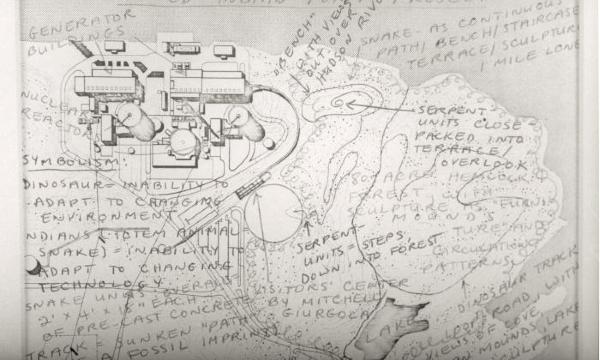 GENERATOR
BUILDINGS
"BENCH"
WITH VIEWS
OUT OVER
HUDSON RIVER
SNAKE - AS CONTINUOUS
PATH/BENCH/STAIRCASE
TERRACE/SCULPTURE
1 MILE LONG
NUCLEAR
REACTOR
SERPENT
UNITS CLOSE
PACKED INTO
TERRACE/
OVERLOOK
SYMBOLISM:
DINOSAUR = INABILITY TO
ADAPT TO CHANGING
ENVIRONMENT
INDIANS (TOTEM ANIMAL
SNAKE) = INABILITY TO
ADAPT TO CHANGING
TECHNOLOGY
80 ACRE HEMLOCK
FOREST WITH
SCULPTURE
MOUNDS
CIRCULATION
PATTERNS
SERPENT
UNITS = STEPS
DOWN INTO FOREST
SNAKE UNITS
2' x 4' x 18" EACH
OF PRE-CAST CONCRETE
TRACK = SUNKEN "PATH"
A FOSSIL IMPRINT
VISITORS' CENTER
BY MITCHELL
GIURGOLA
LAKE
DINOSAUR TRACK
ROAD WITH
VIEWS OF
MOUNDS, LAKE